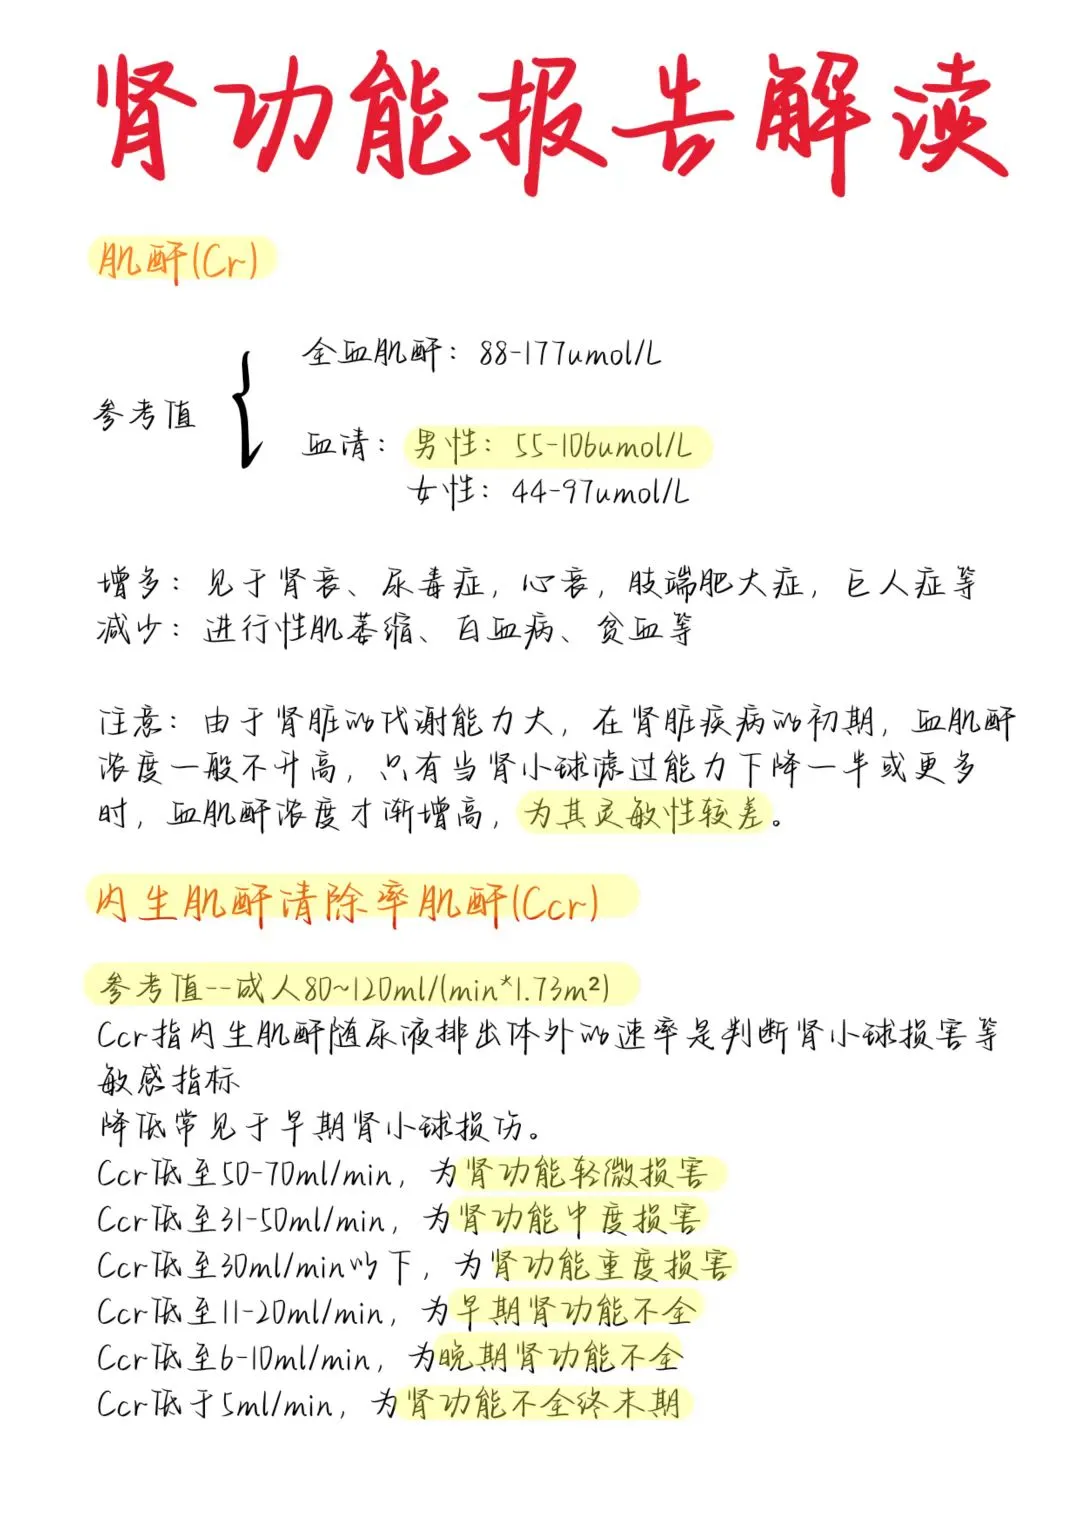 肾功能报告解读
肌酐(Cr)
全血肌酐：88-177umol/L
参考值
血清：男性：55-106umol/L
女性：44-97umol/L
增多：见于肾衰、尿毒症，心衰，肢端肥大症，巨人症等
减少：进行性肌萎缩、白血病、贫血等
注意：由于肾脏的代谢能力大，在肾脏疾病的初期，血肌酐
浓度一般不升高，只有当肾小球滤过能力下降一半或更多
时，血肌酐浓度才渐增高，为其灵敏性较差。
内生肌酐清除率肌酐(Ccr)
参考值--成人80~120ml/(min*1.73m²)
Ccr指内生肌酐随尿液排出体外的速率是判断肾小球损害等
敏感指标
降低常见于早期肾小球损伤。
Ccr低至50-70ml/min，为肾功能轻微损害
Ccr低至31-50ml/min，为肾功能中度损害
Ccr低至30ml/min以下，为肾功能重度损害
Ccr低至11-20ml/min，为早期肾功能不全
Ccr低至6-10ml/min，为晚期肾功能不全
Ccr低于5ml/min，为肾功能不全终末期